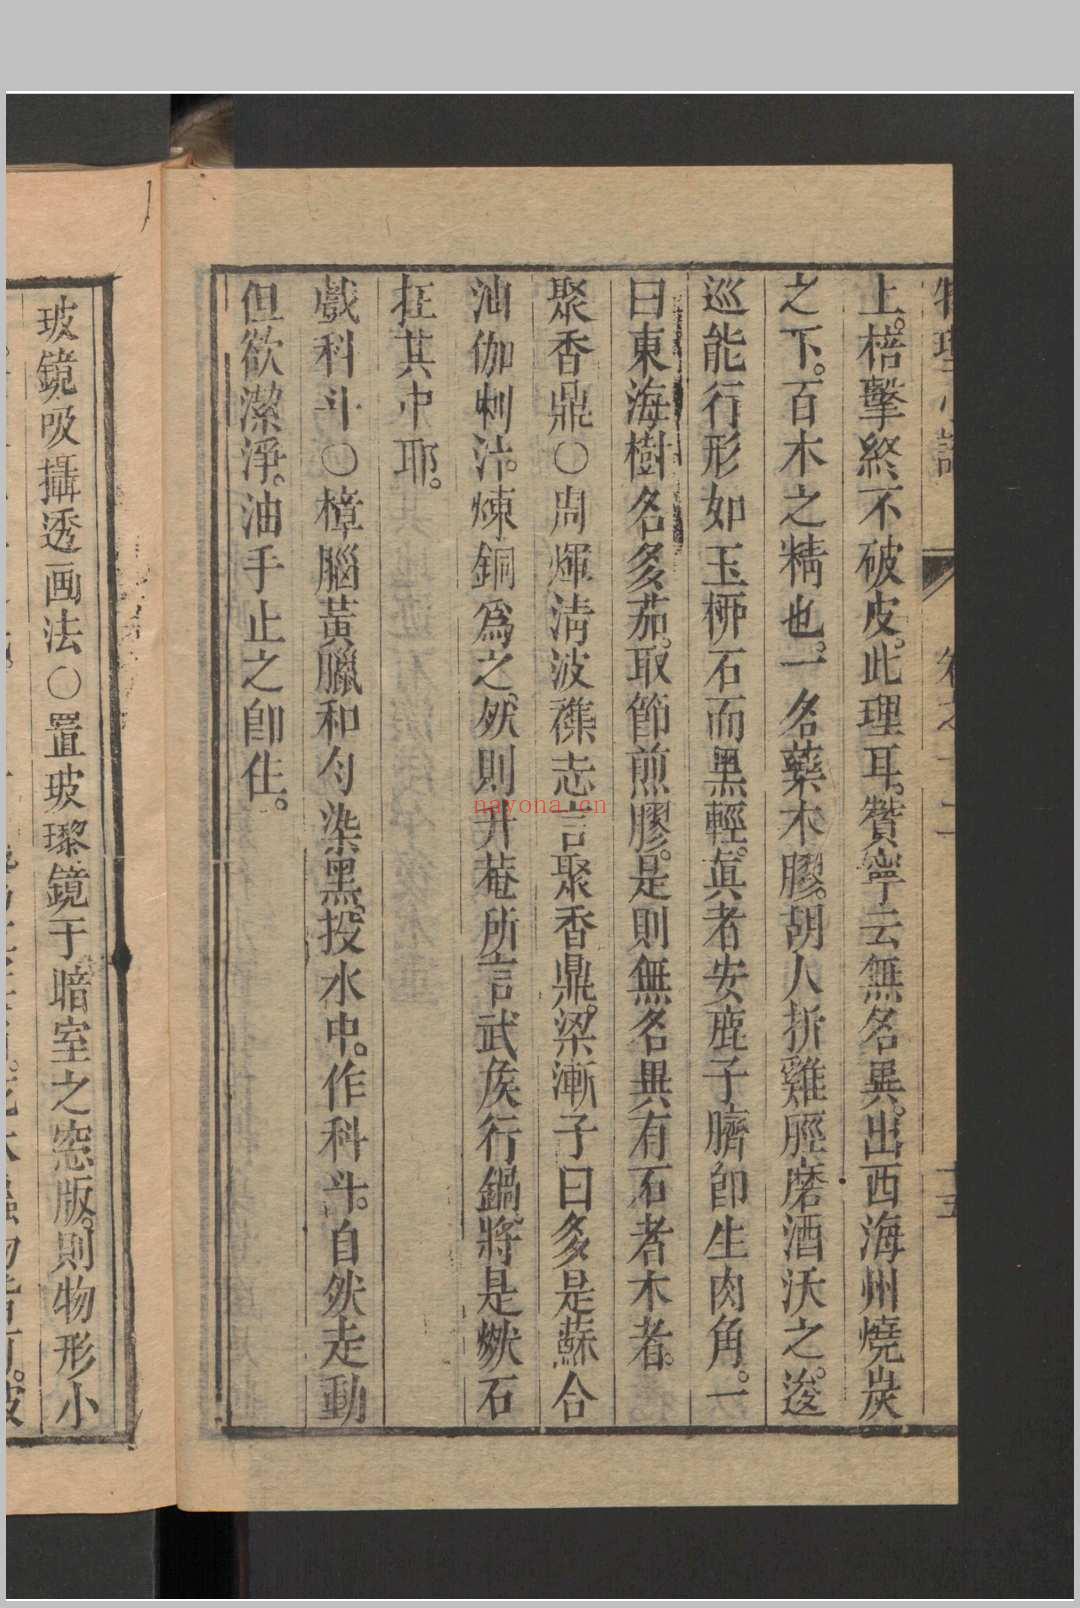 物理小識 卷之十二 十五
上。棓擊終不破皮。此理耳。贊寧云無名異。出西海州燒炭
之下。百木之精也。一名藥木膠。胡人折雞脛磨酒沃之。逡
巡能行形如玉栁石而黑輕。眞者安鹿子臍卽生肉角。一
曰東海樹名多茄。取節煎膠。是則無名異有石者木者。
聚香鼎○周煇淸波襍志言聚香鼎。梁漸子曰多是蘇合
油伽喇沽。煉銅爲之。然則升菴所言武侯行鍋將是燃石
在其中耶。
戲科斗○樟腦黃臘和勻染黑。投水中。作科斗。自然走動
但欲潔淨。油手止之卽住。
玻鏡吸攝透画法○置玻瓈鏡于暗室之窓版。則物形小
nayona.cn